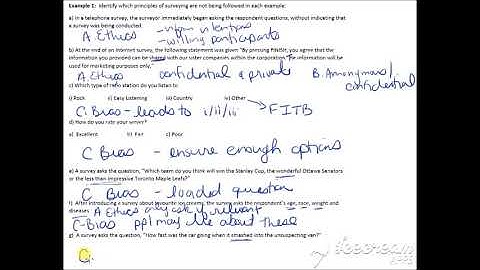 Example 1: Identify which principles of surveying are not being followed in each example:
a) In a telephone survey, the surveyor immediately began asking the respondent questions, without indicating that
a survey was being conducted.
A Ethics - inform intentions
- willing participants
b) At the end of an internet survey, the following statement was given "By pressing FINISH, you agree that the
information you provided can be shared with our sister companies within the corporation. The information will be
used for marketing purposes only."
A. Ethics confidential & private B. Anonymous/
confidential
c) Which type of radio station do you listen to
i) Rock ii) Easy Listening iii) Country iv) Other
C. Bias - leads to i/ii/iii FITB
d) How do you rate your server?
a) Excellent b) Fair c) Poor
C Bias - ensure enough options
e) A survey asks the question, "Which team do you think will win the Stanley Cup, the wonderful Ottawa Senators
or the less than impressive Toronto Maple Leafs?"
C Bias - loaded question
f) After introducing a survey about favourite ice creams, the survey asks the respondent's age, race, weight and
diseases A Ethics only ask if relevant
C-Bias ppl may lie about these
g) A survey asks the question, "How fast was the car going when it smashed into the unsuspecting van?"
C